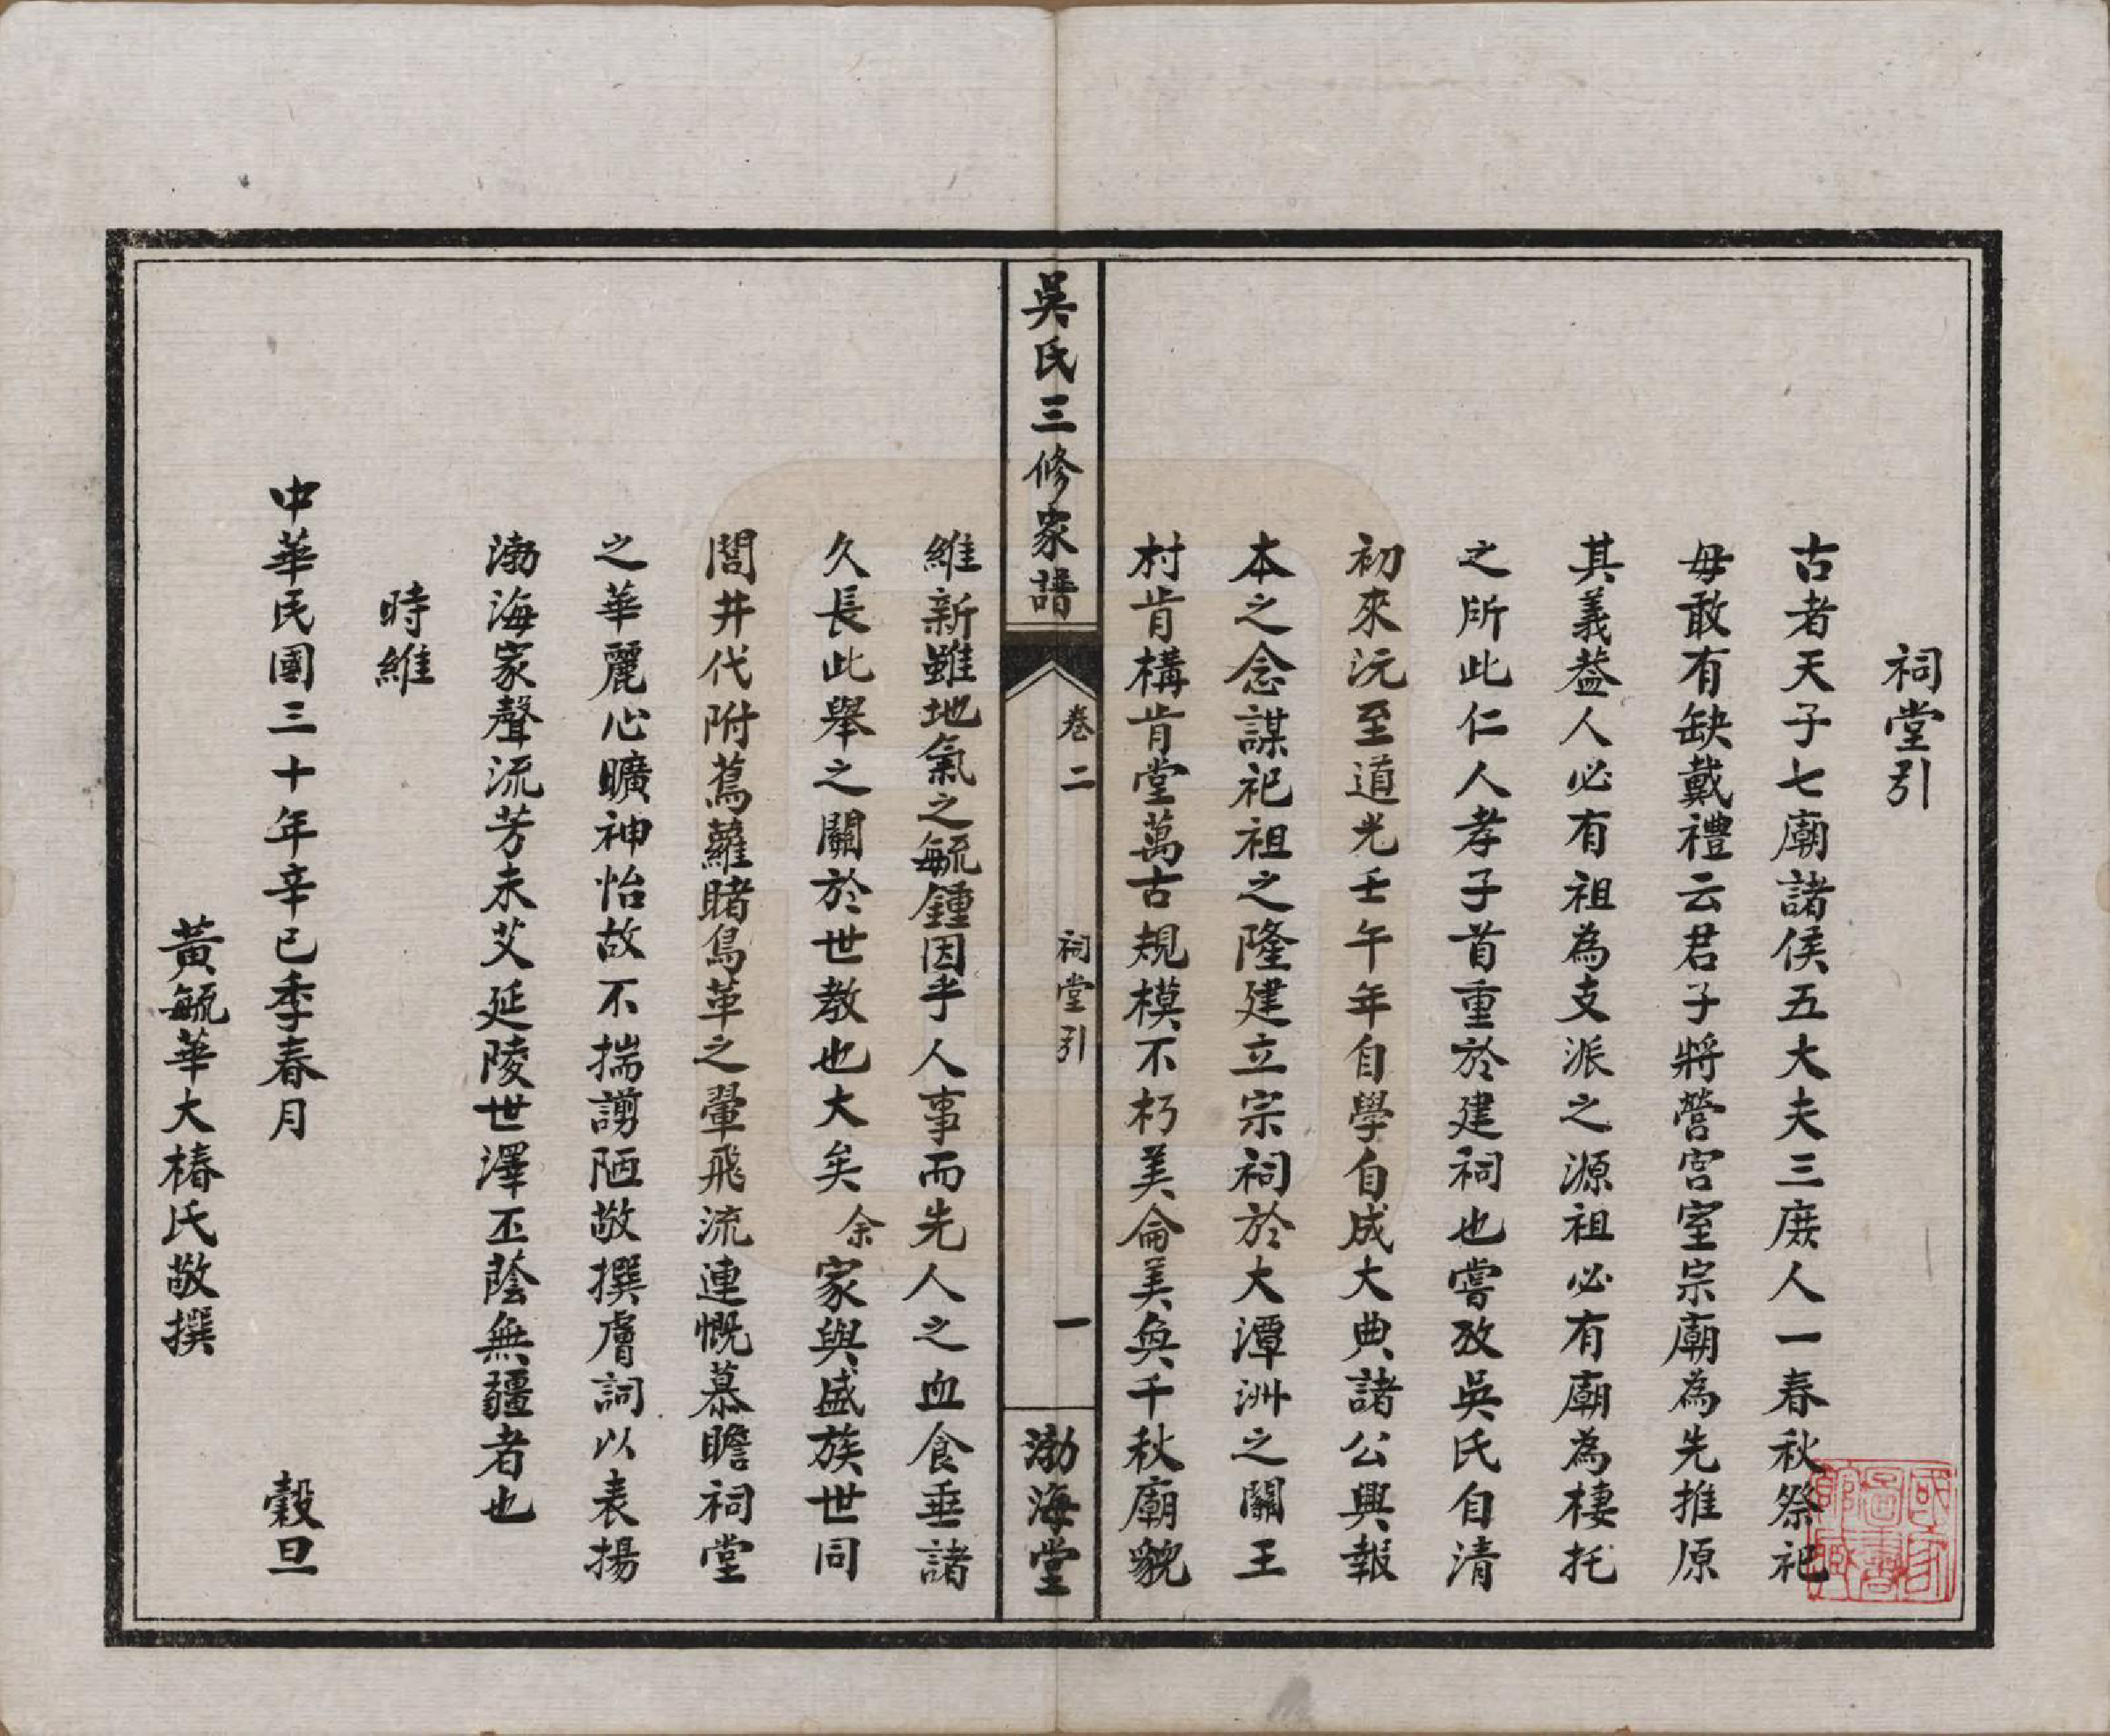 祠堂引
古者天子七廟諸侯五大夫三庶人一春秋祭祀
毋敢有缺戴禮云君子將營宮室宗廟為先推原
其義葢人必有祖為支派之源祖必有廟為棲托
之所此仁人孝子首重於建祠也嘗攷吳氏自清
初來沅至道光壬午年自學自成大典諸公興報
本之念謀祀祖之隆建立宗祠於大潭洲之關王
村肯構肯堂萬古規模不朽美侖美奐千秋廟貌
吳氏三修家譜
卷二
祠堂引
一
渤海堂
維新雖地氣之毓鍾因乎人事而先人之血食垂諸
久長此舉之關於世教也大矣余家與盛族世同
閭井代附蔦蘿睹鳥革之翬飛流連慨慕瞻祠堂
之華麗心曠神怡故不揣謭陋敬撰膚詞以表揚
渤海家聲流芳未艾延陵世澤丕蔭無疆者也
時維
中華民國三十年辛巳季春月 穀旦
黃毓華大椿氏敬撰
國家
圖書
館藏